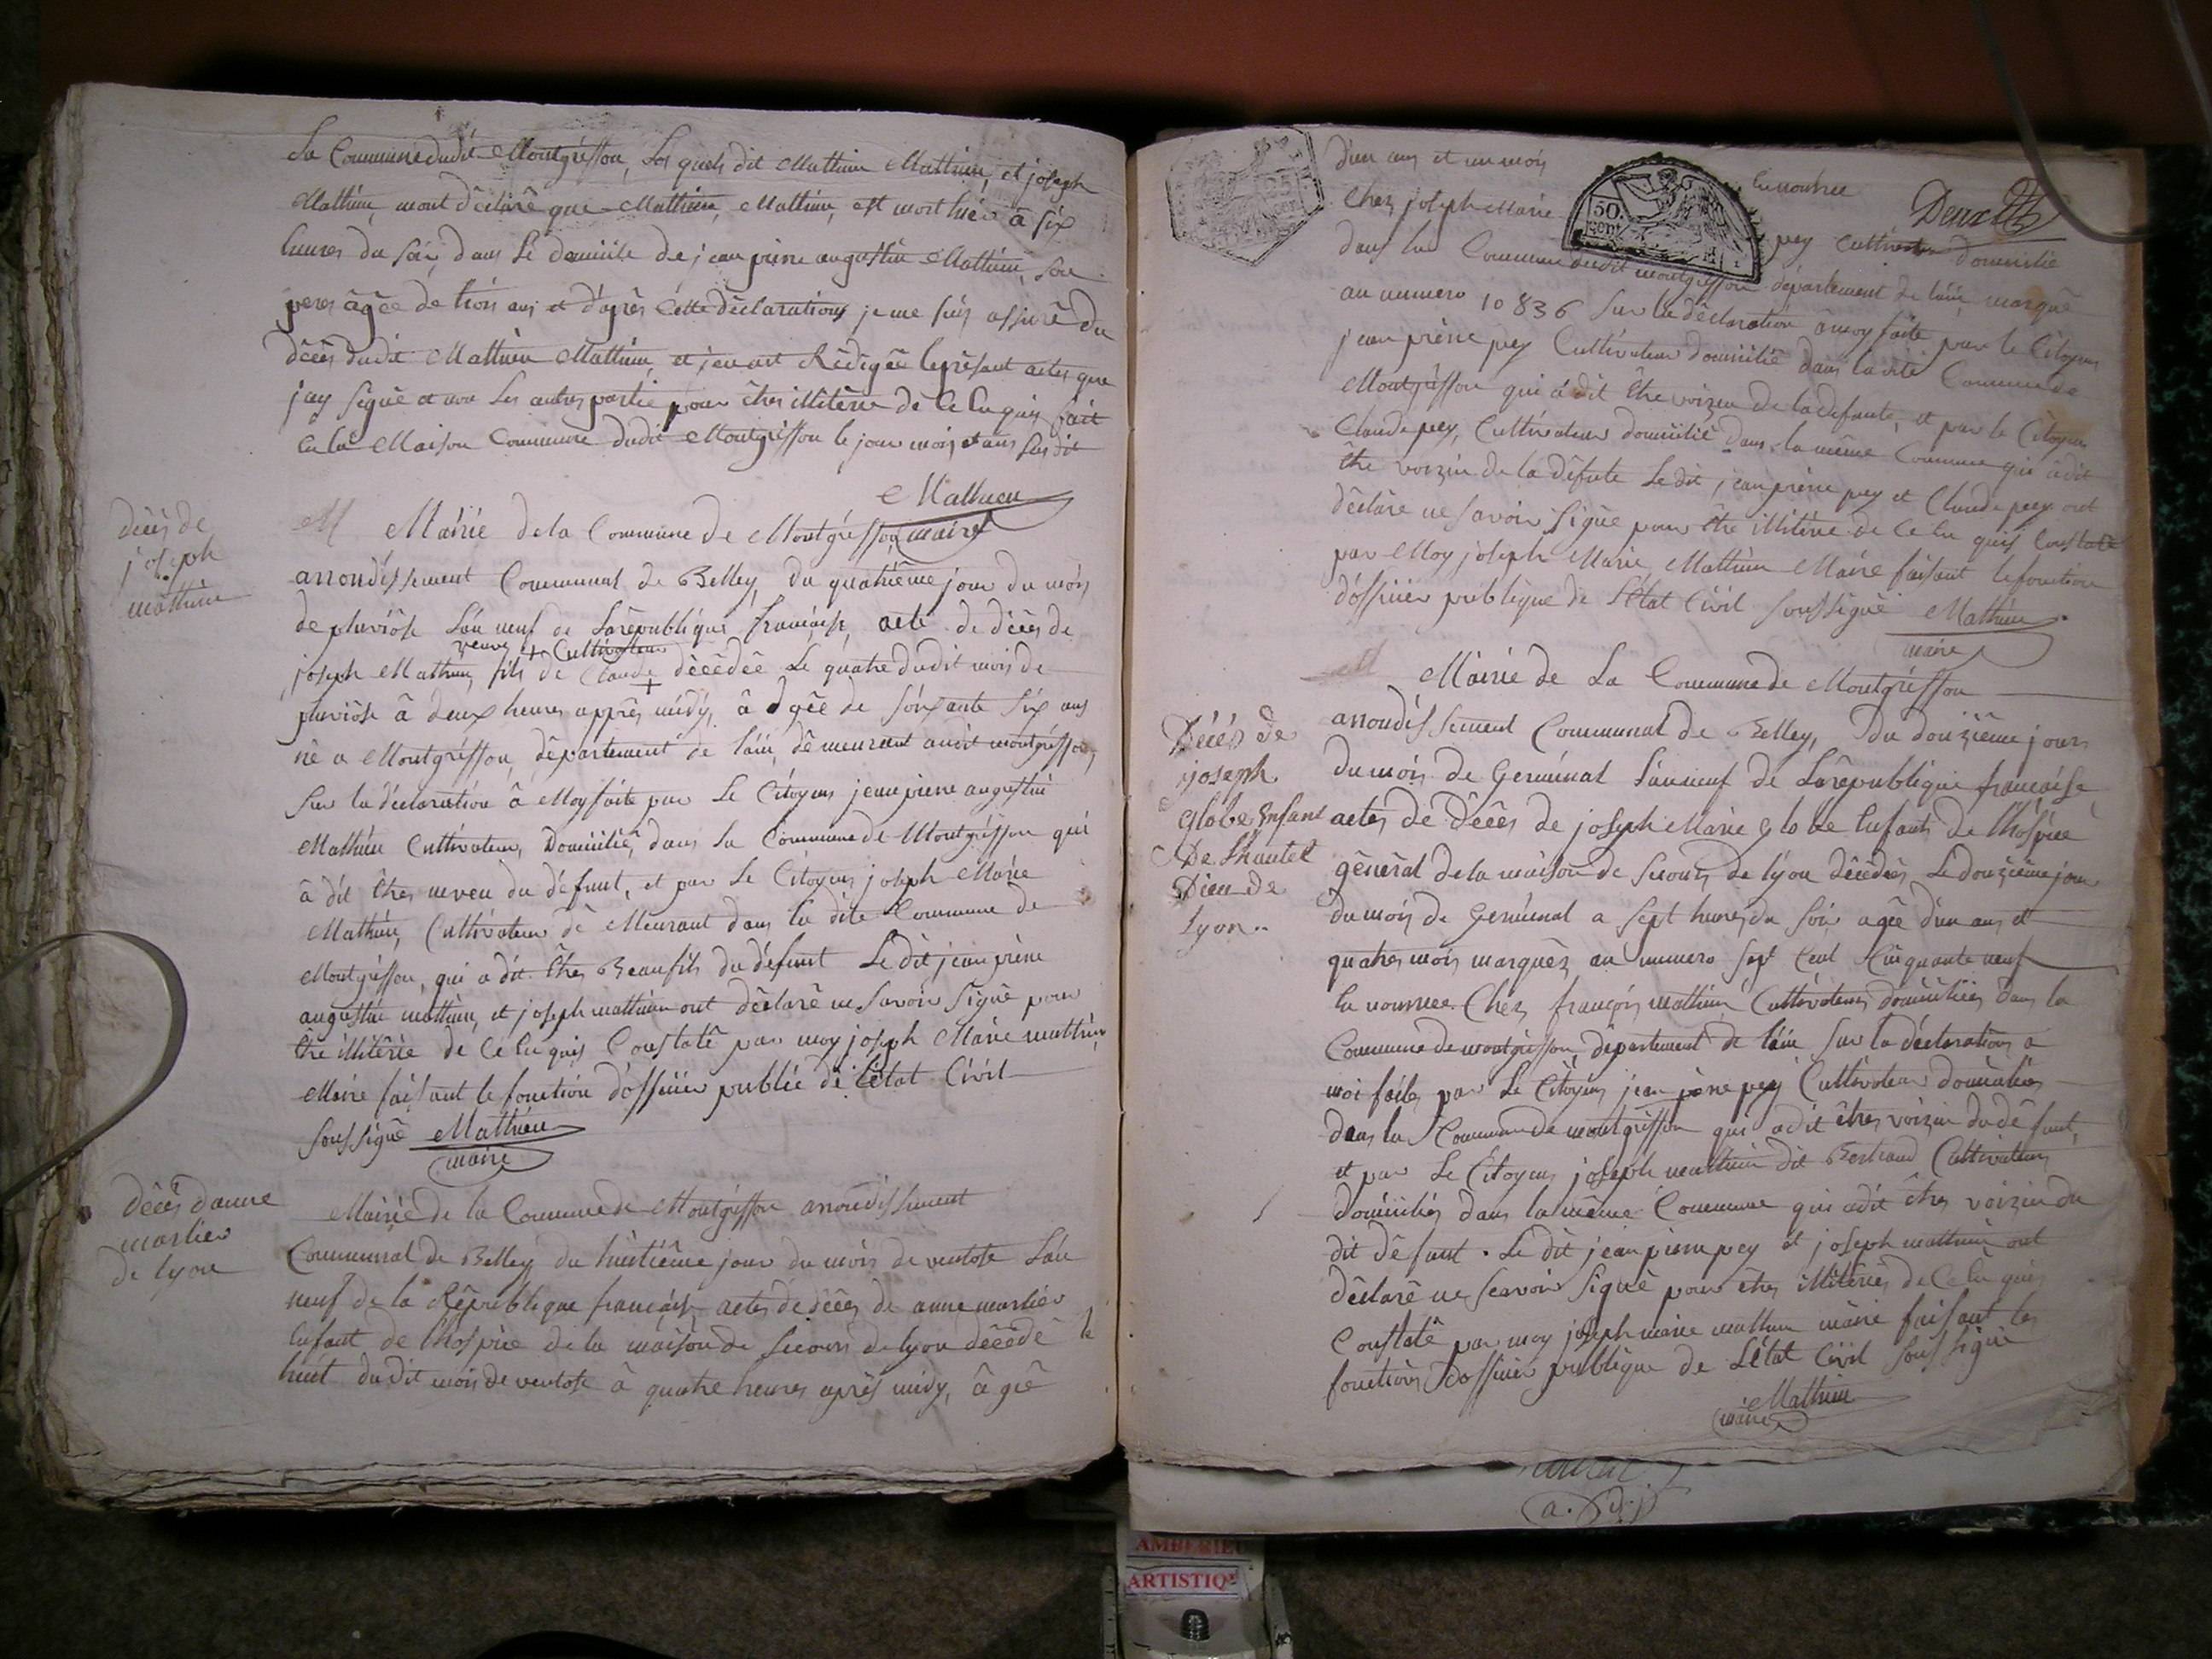 La Commune dudit Montgriffon, Les quels dit Mathieu Mathieu, et joseph
Mathieu, mont déclaré que Mathieu, Mathieu, est mort hier à six
heures du soir, dans le domicile de jean piere augustin Mathieu, son
peres âgée de trois ans et d'après cette déclarations je me suis assuré du
décés dudit Mathieu Mathieu, et jen ait Rédigée le présant actes que
jay signé et non les autres partie pour êtres illitère de ce enquis fait
en la Maison Commune dudit Montgriffon le jour mois et ans susdit
Mathieu
maire
décés de
joseph
mathieu
M Mairie de la Commune de Montgriffon
arrondissement Communal de Belley, du quatrième jour du mois
de pluviose L'an neuf de La république francaise, acte de décés de
veuve + Cultivateur
joseph Mathieu, fils de Claude + décédée Le quatre dudit mois de
pluviose à deux heures apprès midy, âgée de soixante six ans
né a Montgriffon, département de l'ain, demeurant audit montgriffon,
sur la déclaration à Moy faite par Le Citoyen jean piere augustin
Mathieu Cultivateur, Domicilié, dans La Commune de Montgriffon qui
à dit êtres neveu du défunt, et par Le Citoyen joseph Marie
Mathieu, Cultivateur dé Meurant dans la dite Commune de
Montgriffon, qui a dit êtres Beaufils du défunt Le dit jean piere
augustin mathieu, et joseph mathieu ont déclaré ne savoir signé pour
être illitérée de ce enquis Constaté par moy joseph Marie mathieu
Maire faisant le fonction d'officier public de L'état Civil
soussigné Mathieu
maire
décés danne
marlier
de lyon
Mairie de la Commune de Montgriffon arrondissement
Communal de Belley du huitième jour du mois de ventose L'an
neuf de la République francaise actes de décés de anne marlier
enfant de l'hospice de la maison de secours de lyon décédé le
huit du dit mois de ventose à quatre heures après midy, âgé
d'un ans et un mois
en nourice
25
cen.
50.
cent.
Chez joseph Marie pey Cultivateur domicilié
dans la Commune dudit montgriffon département de l'ain marqué
au numero 10836 sur la déclaration à moy faite par le Citoyen
jean piere pey Cultivateur domicilié dans la dite Commune de
Montgriffon qui à dit être voizin de la defunte, et par le Citoyen
Claude pey, Cultivateur domicilié dans la même Commune qui a dit
être voizin de la défunte Le dit jean piere pey et Claude pey ont
déclaré ne savoir signé pour être illitére de ce enquis Constaté
par Moy joseph Marie Mathieu Maire faisant le fonction
d'officier publique de L'état Civil soussigné Mathieu
maire
M Mairie de La Commune de Montgriffon
Décés de
joseph
Globe Enfant
De L'hautel
Dieu de
Lyon..
arrondissement Communal de Belley, Du douzième jours
du mois de Germinal L'an neuf de La république francaise
actes de décés de joseph Marie globe Enfants de l'hospice
général de la maison de secours de lyon décédées Le douzième jour
du mois de Germinal a sept heures du soir, agée d'un ans et
quatres mois marqués au numero sept Cent Cinquante neuf
En nourrice Chez françois mathieu Cultivateur domiciliées dans la
Commune de montgriffon, département de l'ain sur la déclarations a
moi faites par Le Citoyen jean piere pey Cultivateur domiciliés
dans la Commune de montgriffon qui a dit êtres voizin du défunt,
et par Le Citoyen joseph mathieu dit Bertrand Cultivateur
domiciliés dans la même Commune qui a dit êtres voizin du
dit défunt. Le dit jean piere pey et joseph mathieu ont
déclaré ne scavoir signé pour êtres illitérées de ce enquis
Constaté par moy joseph marie mathieu maire faisant les
fonctions d'officier publique de L'état Civil soussigné
Mathieu
maire
AMBERIEU
ARTISTIQ